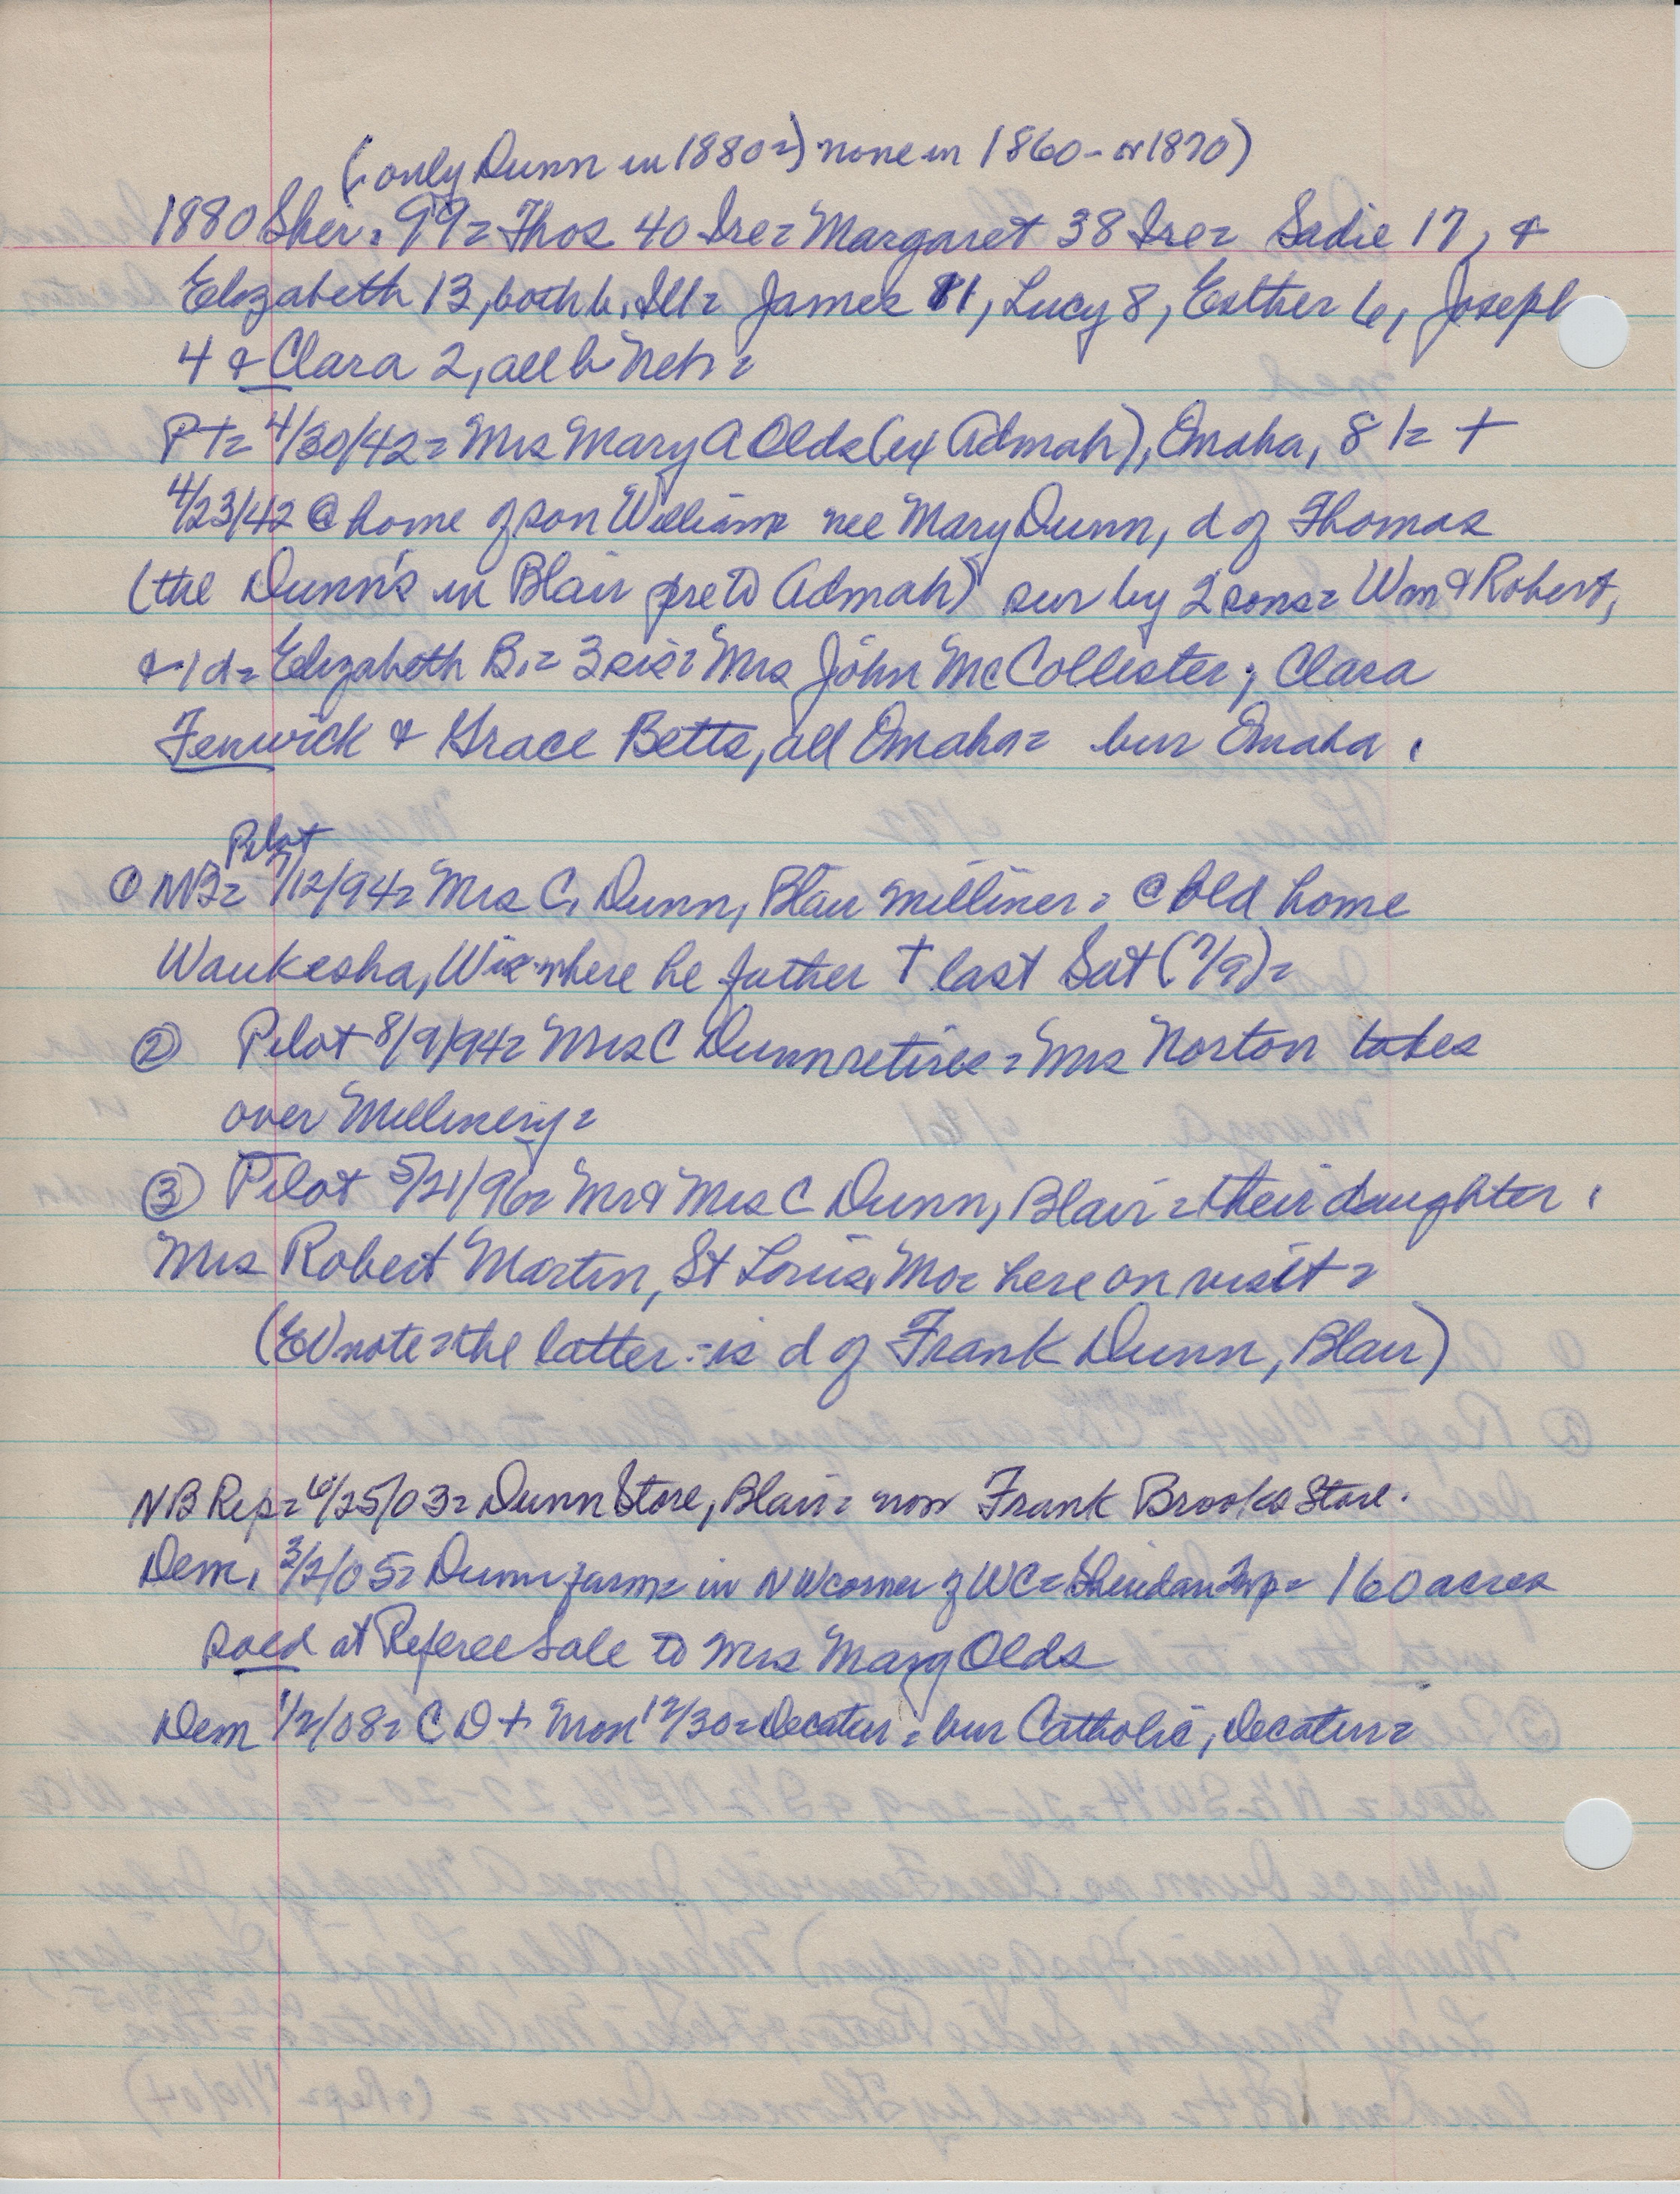 (only Dunn in 1880=) none in 1860 - or 1870)
1880 Sher. 99= Thos 40 Ire= Margaret 38 Ire= Sadie 17, &
Elizabeth 13, both b. Ill= James 11, Lucy 8, Esther 6, Joseph
4 & Clara 2, all b Neb=
PT= 4/30/42= Mrs Mary A Olds (ex Admah), Omaha, 81= +
4/23/42 @ home of son William nee Mary Dunn, d of Thomas
(the Dunn's in Blair pre to Admah) sur by 2 sons= Wm & Robert,
& 1 d= Elizabeth B.= 3 sis= Mrs John McCollister; Clara
Fenwick & Grace Betts, all Omaha= bur Omaha.
Pilot
① NB= 7/12/94= Mrs C. Dunn, Blair milliner= @ old home
Waukesha, Wis where he father + last Sat (7/9)=
② Pilot 8/9/94= Mrs C Dunn retires= Mrs Norton takes
over Millinery=
③ Pilot 5/21/96= Mr & Mrs C Dunn, Blair= their daughter.
Mrs Robert Martin, St Louis, Mo= here on visit=
(EV note= the latter is d of Frank Dunn, Blair)
NB Rep= 6/25/03= Dunn Store, Blair= now Frank Brooks Store.
Dem. 3/2/05= Dunn farm= in NW corner of WC= Sheridan Twp= 160 acres
sold at Referee Sale to Mrs Mary Olds
Dem 1/2/08= C D + Mon 12/30= Decatur= bur Catholic, Decatur=